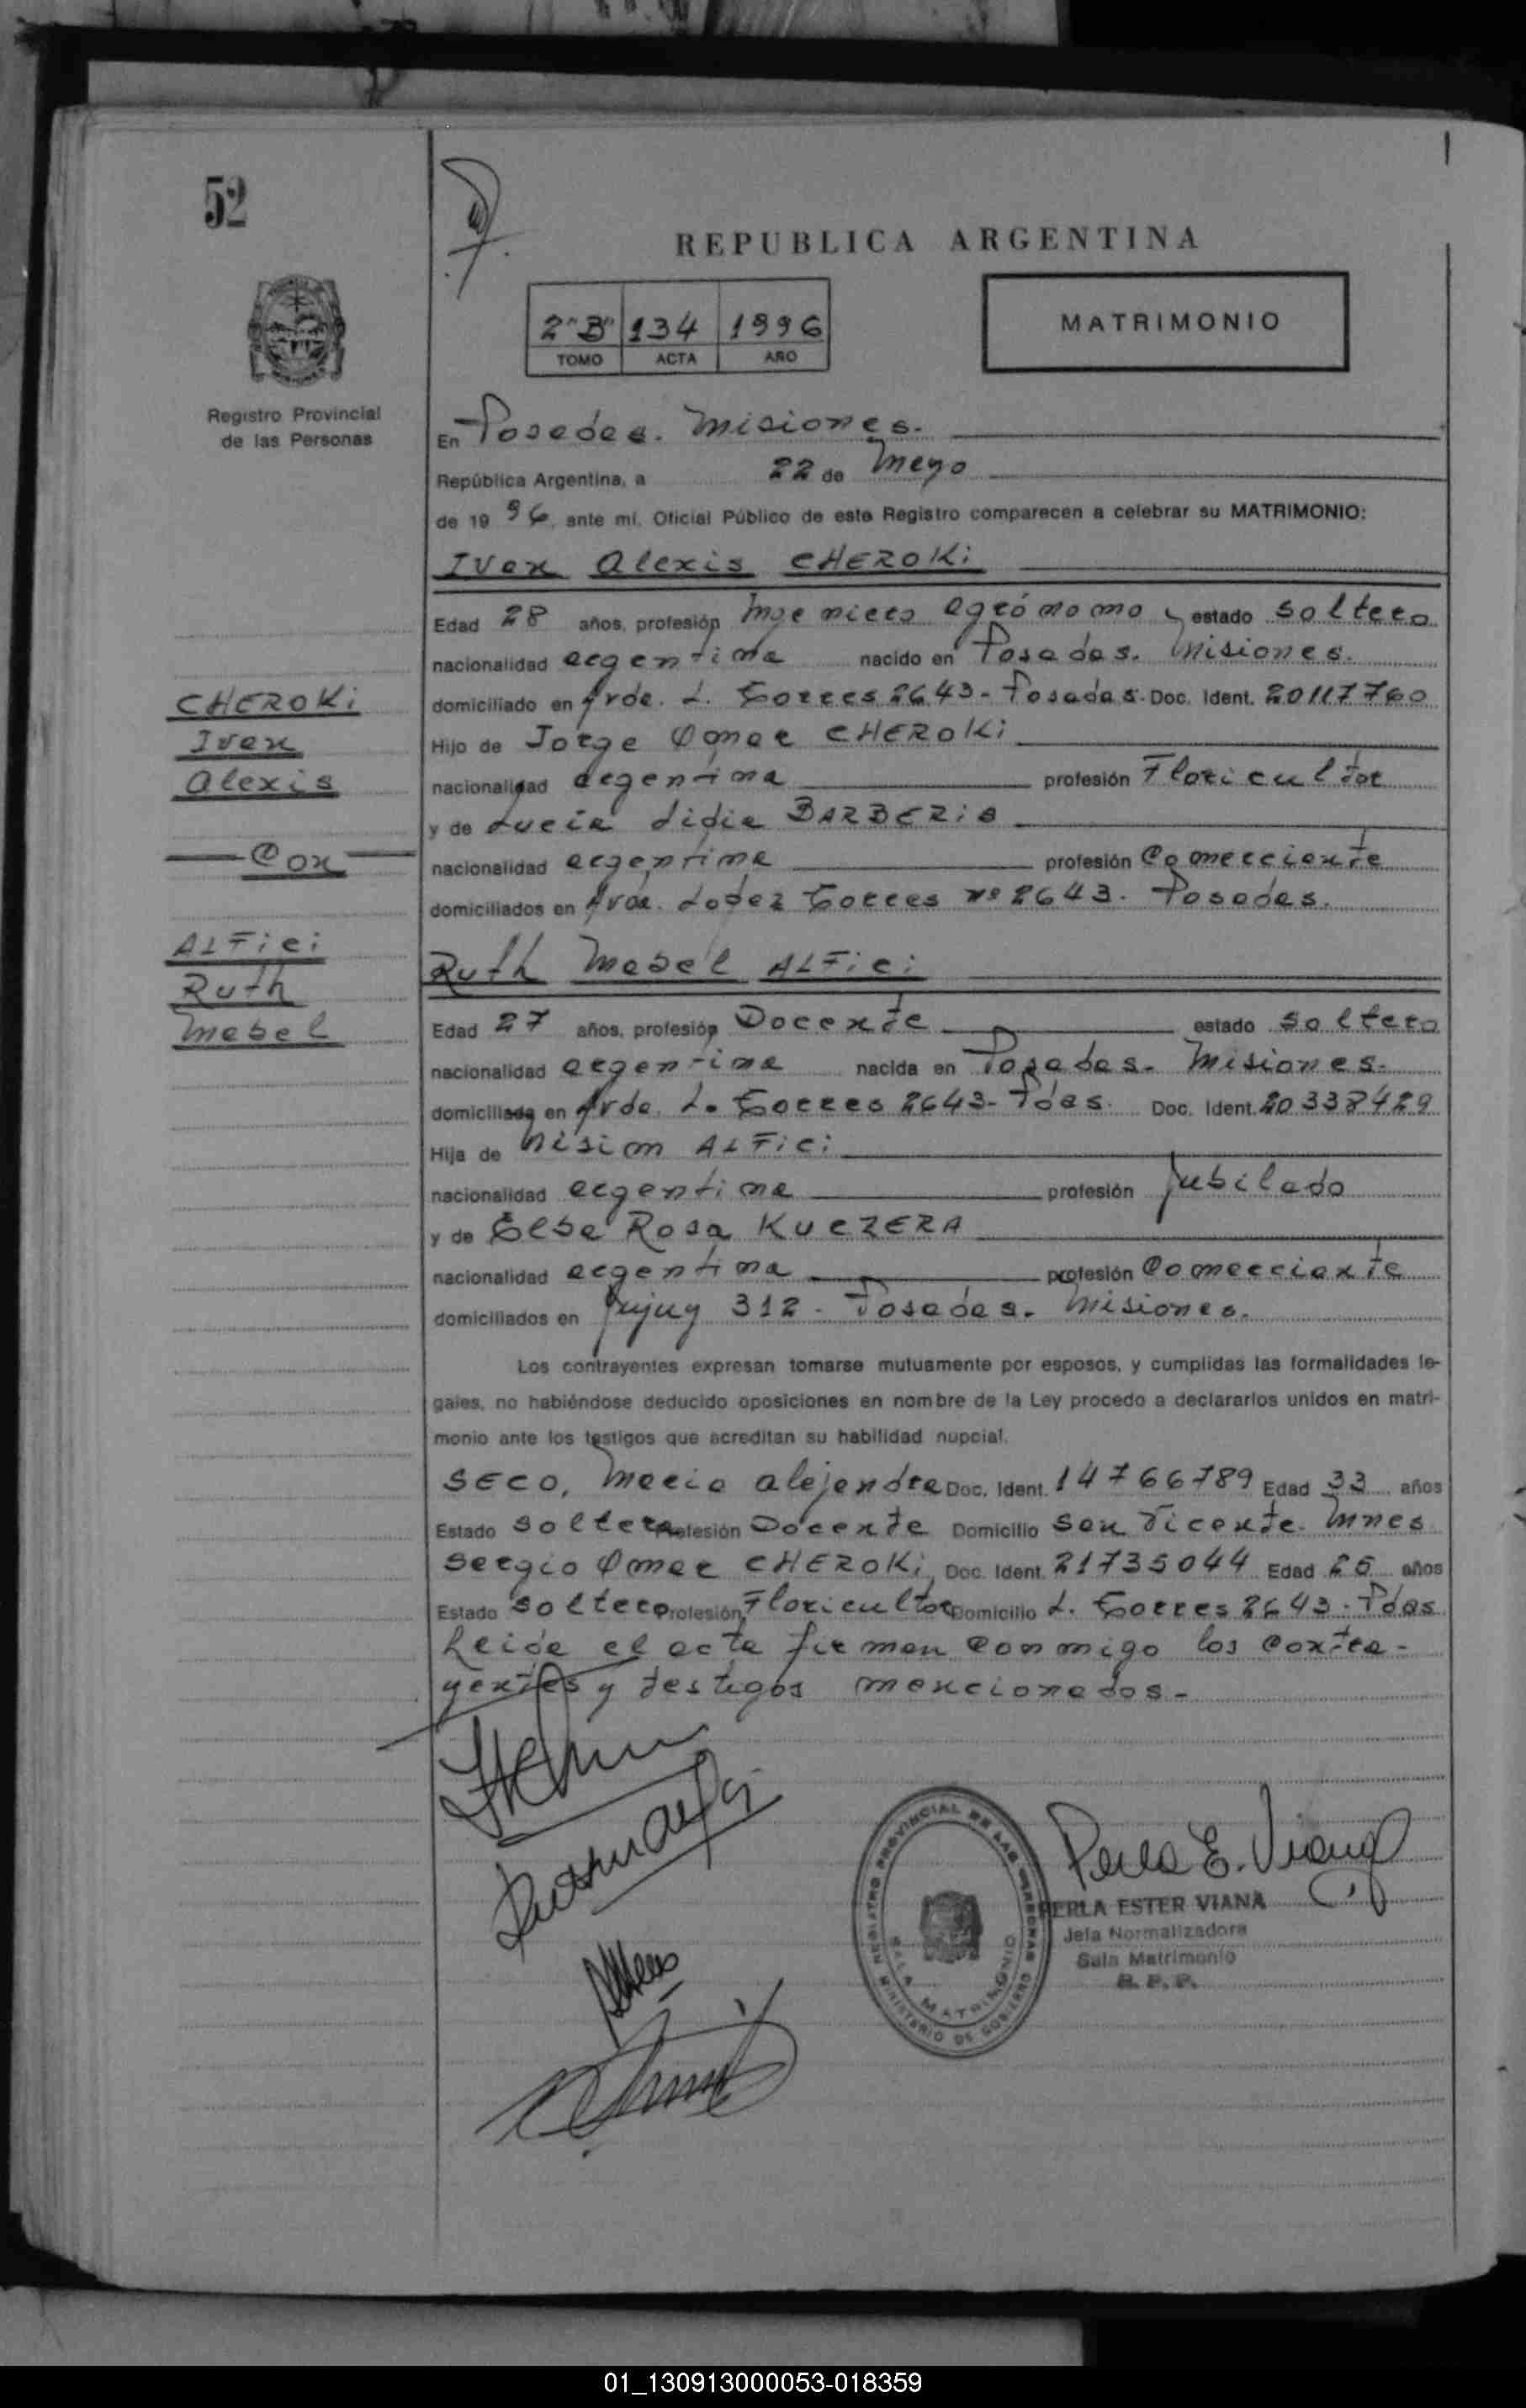 52
REPUBLICA ARGENTINA
2"B" 134 1996
TOMO ACTA AÑO
MATRIMONIO
Registro Provincial
de las Personas
En Posadas. Misiones.
República Argentina, a 22 de Mayo
de 19 96, ante mí, Oficial Público de este Registro comparecen a celebrar su MATRIMONIO:
Ivan Alexis CHEROKi
Edad 28 años, profesión Ingeniero agrónomo estado soltero
nacionalidad argentina nacido en Posadas. Misiones.
domiciliado en Avda. L. Torres 2643 - Posadas. Doc. Ident. 20117760
Hijo de Jorge Omar CHEROKi
nacionalidad argentina profesión Floricultor
y de Lucía Lidia BARBERis
nacionalidad argentina profesión Comerciante
domiciliados en Avda. Lopez Torres nº 2643. Posadas.
CHEROKi
Ivan
Alexis
Con
ALFici
Ruth
Mabel
Ruth Mabel ALFici
Edad 27 años, profesión Docente estado soltera
nacionalidad argentina nacida en Posadas. Misiones.
domiciliada en Avda. L. Torres 2643 - Pdas. Doc. Ident. 20338429
Hija de Nisim ALFici
nacionalidad argentina profesión Jubilado
y de Elba Rosa KUCZERA
nacionalidad argentina profesión Comerciante
domiciliados en Jujuy 312 - Posadas. Misiones.
Los contrayentes expresan tomarse mutuamente por esposos, y cumplidas las formalidades le-
gales, no habiéndose deducido oposiciones en nombre de la Ley procedo a declararlos unidos en matri-
monio ante los testigos que acreditan su habilidad nupcial.
SECO, María Alejandra Doc. Ident. 14766789 Edad 33 años
Estado soltera Profesión Docente Domicilio San Vicente. Mnes
Sergio Omar CHEROKi, Doc. Ident. 21735044 Edad 25 años
Estado soltero Profesión Floricultor Domicilio L. Torres 2643. Pdas
Leida el acta firman conmigo los contra-
yentes y testigos mencionados-
REGISTRO PROVINCIAL DE LAS PERSONAS
SALA MATRIMONIO
MINISTERIO DE GOBIERNO
Perla E. Viana
PERLA ESTER VIANA
Jefa Normalizadora
Sala Matrimonio
R. P. P.
01_130913000053-018359